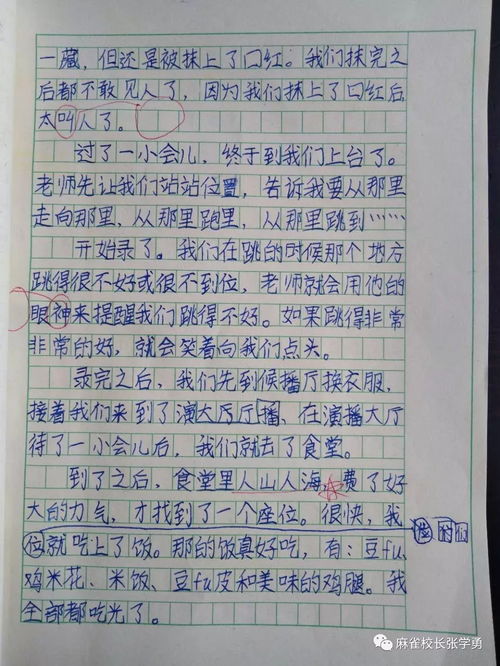 一藏，但还是被抹上了口红。我们抹完之
后都不敢见人了，因为我们抹上了口红后
太叫人了。
过了一小会儿，终于到我们上台了。
老师先让我们站站位置，告诉我要从那里
走向那里，从那里跑里，从那里跳到……
开始录了。我们在跳的时候那个地方
跳得很不好或很不到位，老师就会用他的
眼神来提醒我们跳得不好。如果跳得非常
非常的好，就会笑着向我们点头。
录完之后，我们先到候播厅换衣服，
接着我们来到了演大厅厅播、在演播大厅
待了一小会儿后，我们就去了食堂。
到了之后，食堂里人山人海，费了好
大的力气，才找到了一个座位。很快，我
位就吃上了饭。那的饭真好吃，有：豆fu、
鸡米花、米饭、豆fu皮和美味的鸡腿。我
全部都吃光了。
麻雀校长张学勇